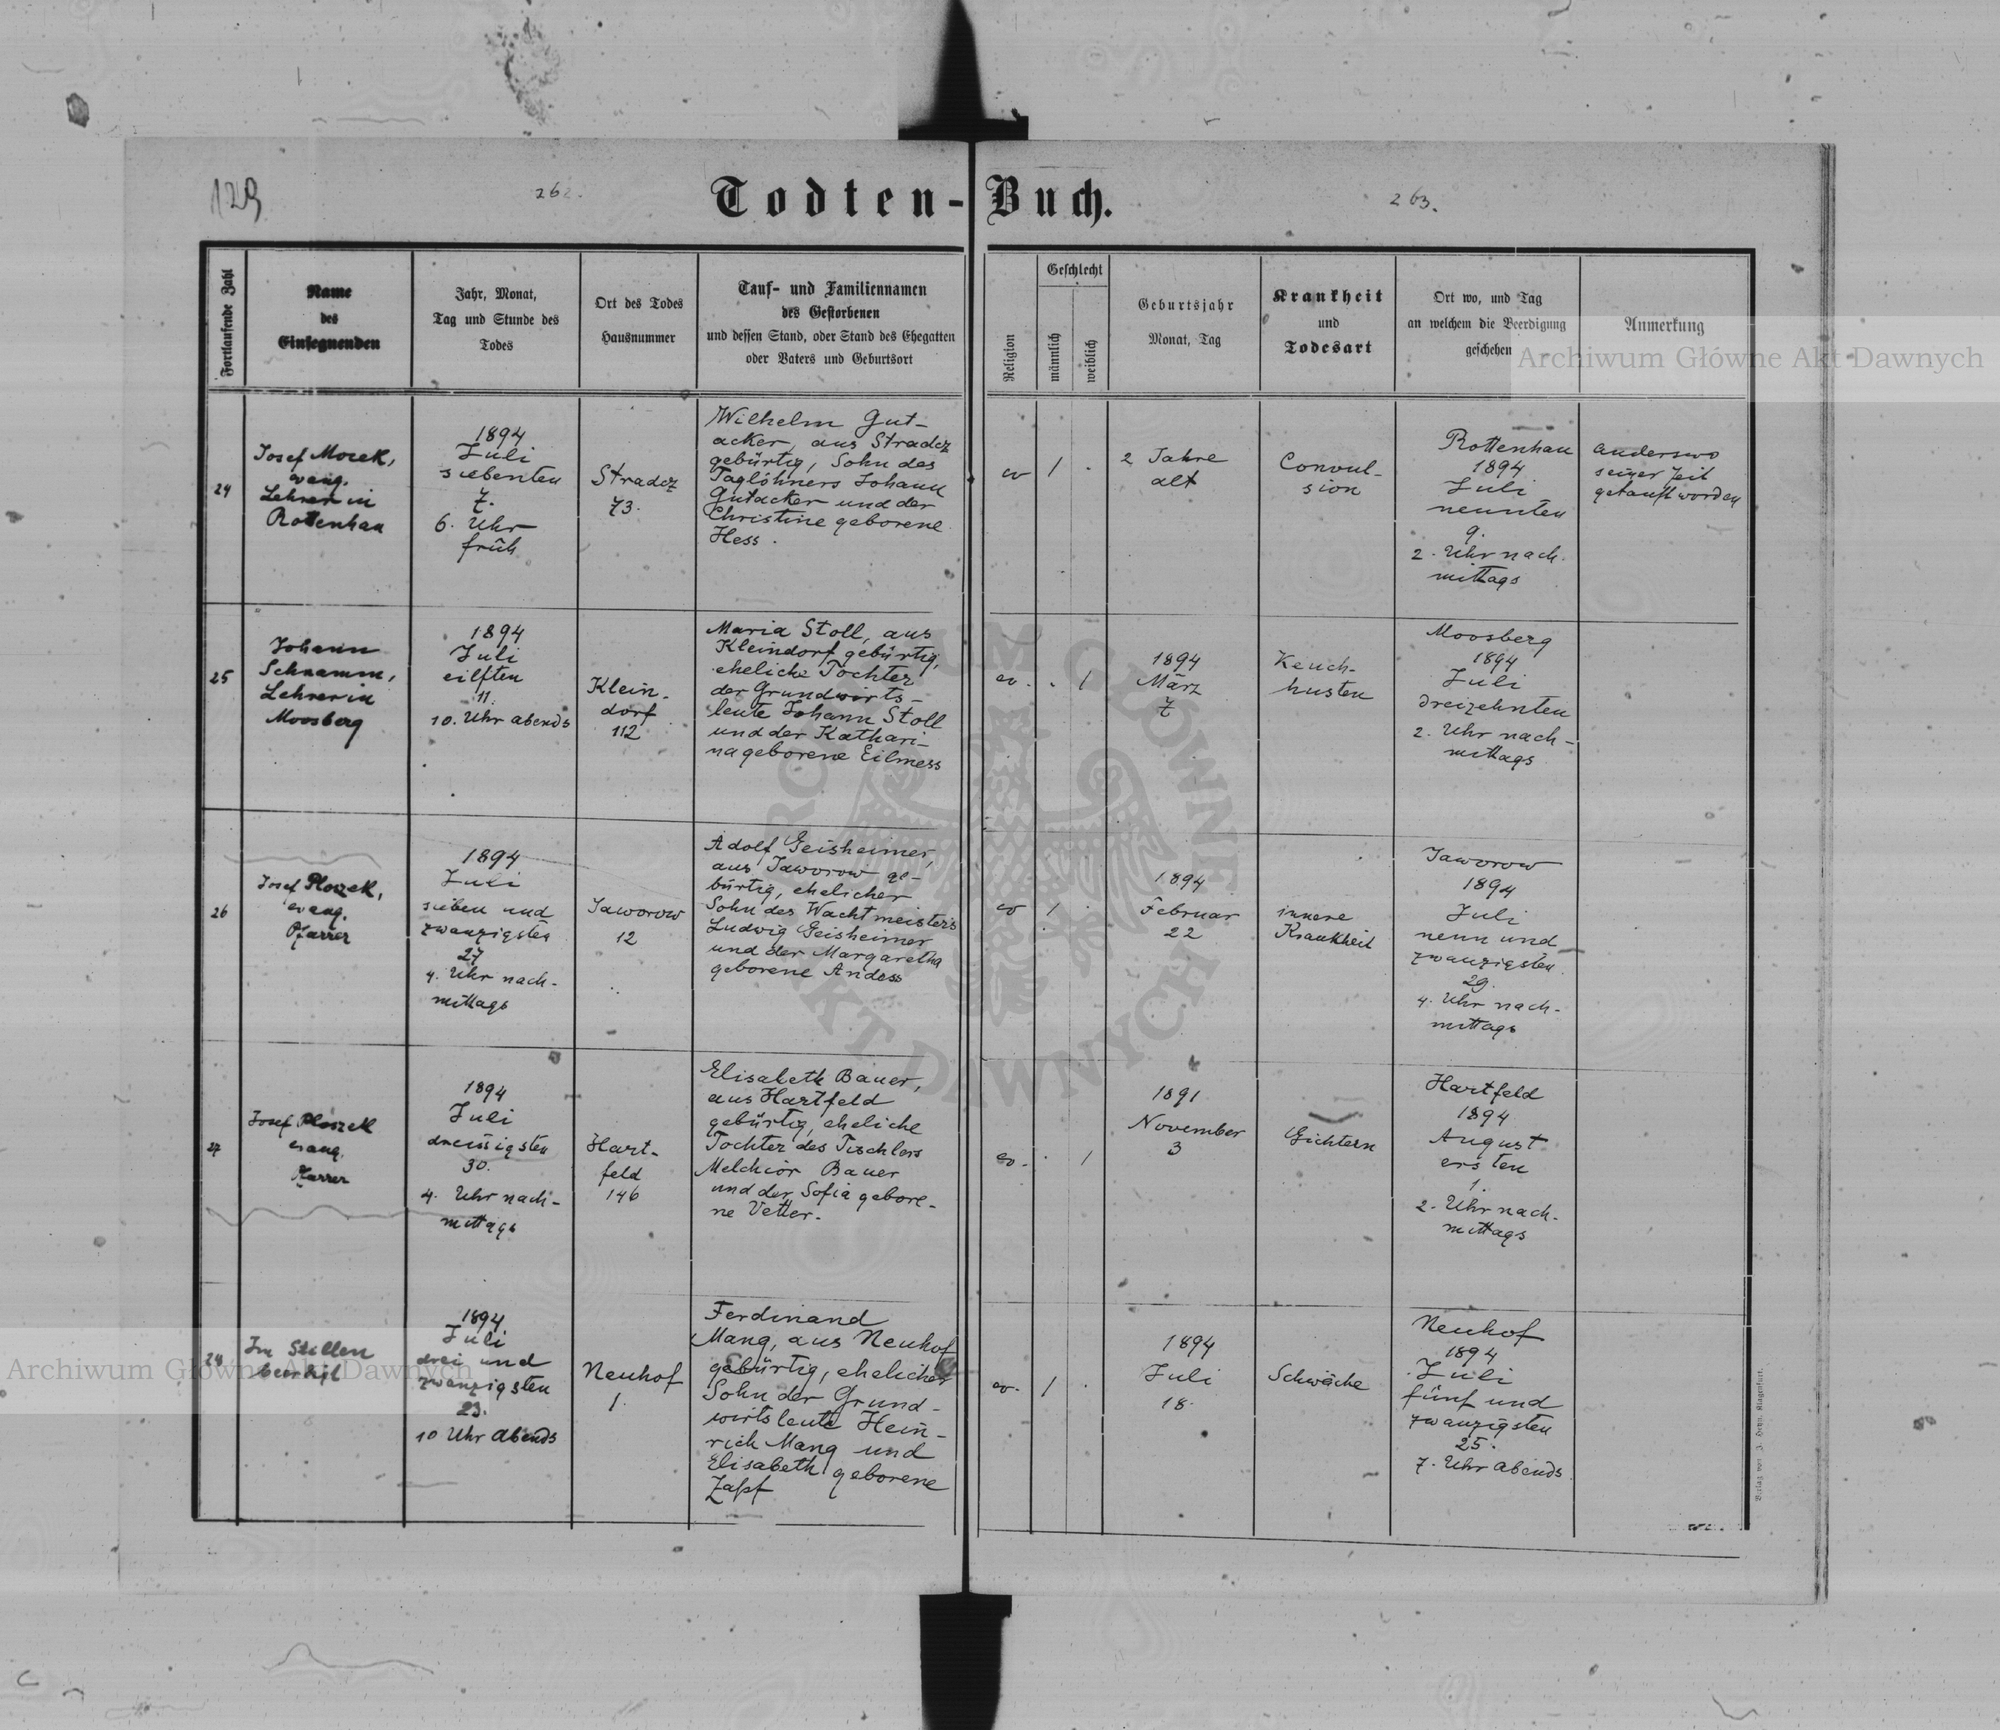 129
262.
263.
Todten-Buch.
Fortlaufende Zahl
Name
des
Einsegnenden
Jahr, Monat,
Tag und Stunde des
Todes
Ort des Todes
Hausnummer
Tauf- und Familiennamen
des Gestorbenen
und dessen Stand, oder Stand des Ehegatten
oder Vaters und Geburtsort
Religion
Geschlecht
männlich
weiblich
Geburtsjahr
Monat, Tag
Krankheit
und
Todesart
Ort wo, und Tag
an welchem die Beerdigung
geschehen
Anmerkung
Archiwum Główne Akt Dawnych
24
Josef Morek,
evang.
Lehrer in
Rottenhan
1894
Juli
siebenten
7.
6. Uhr
früh
Stradcz
73.
Wilhelm Gut-
acker, aus Stradcz
gebürtig, Sohn des
Taglöhners Johann
Gutacker und der
Christine geborene
Hess.
ev
1
2 Jahre
alt
Convul-
sion
Rottenhan
1894
Juli
neunten
9.
2. Uhr nach-
mittags
anderswo
seiner Zeit
getauft worden
25
Johann
Schramm,
Lehrer in
Moosberg
1894
Juli
eilften
11.
10. Uhr abends
Klein-
dorf
112
Maria Stoll, aus
Kleindorf gebürtig,
eheliche Tochter
der Grundwirts-
leute Johann Stoll
und der Kathari-
na geborene Eilmess
ev.
1
1894
März
7
Keuch-
husten
Moosberg
1894
Juli
dreizehnten
2. Uhr nach-
mittags
26
Josef Ploszek,
evang.
Pfarrer
1894
Juli
sieben und
zwanzigsten
27
4. Uhr nach-
mittags
Jaworow
12
Adolf Geisheimer,
aus Jaworow ge-
bürtig, ehelicher
Sohn des Wachtmeisters
Ludwig Geisheimer
und der Margaretha
geborene Andess
ev
1
1894
Februar
22
innere
Krankheit
Jaworow
1894
Juli
neun und
zwanzigsten
29.
4. Uhr nach-
mittags
27
Josef Ploszek
evang.
Pfarrer
1894
Juli
dreissigsten
30.
4. Uhr nach-
mittags
Hart-
feld
146
Elisabeth Bauer,
aus Hartfeld
gebürtig, eheliche
Tochter des Tischlers
Melchior Bauer
und der Sofia gebore-
ne Vetter.
ev.
1
1891
November
3
Gichtern
Hartfeld
1894
August
ersten
1.
2. Uhr nach-
mittags
28
Im Stillen
1894
Juli
drei und
zwanzigsten
23.
10 Uhr abends
Neuhof
1.
Ferdinand
Mang, aus Neuhof
gebürtig, ehelicher
Sohn der Grund-
wirtsleute Hein-
rich Mang und
Elisabeth geborene
Zapf
ev.
1
1894
Juli
18.
Schwäche
Neuhof
1894
Juli
fünf und
zwanzigsten
25.
7. Uhr abends
Archiwum Główne Akt Dawnych
Verlag von J. Heyn, Klagenfurt.
ARCHIWUM GŁÓWNE AKT DAWNYCH